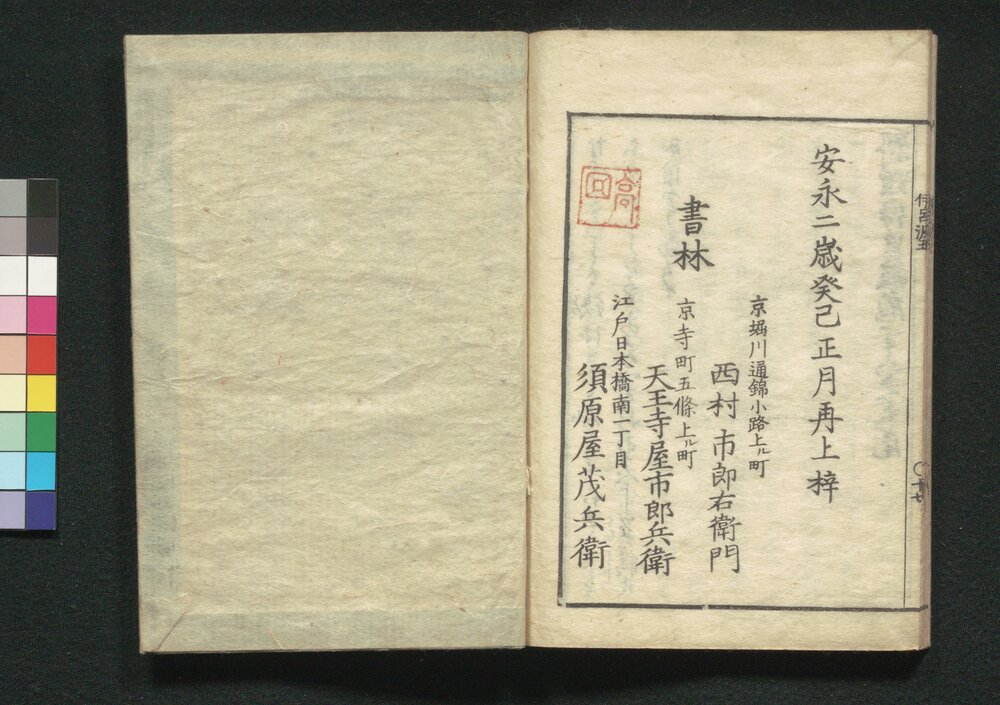 安永二歳癸己正月再上梓
書林
京堀川通錦小路上ル町
西村市郎右衛門
京寺町五條上ル町
天王寺屋市郎兵衛
江戸日本橋南一丁目
須原屋茂兵衛
十七